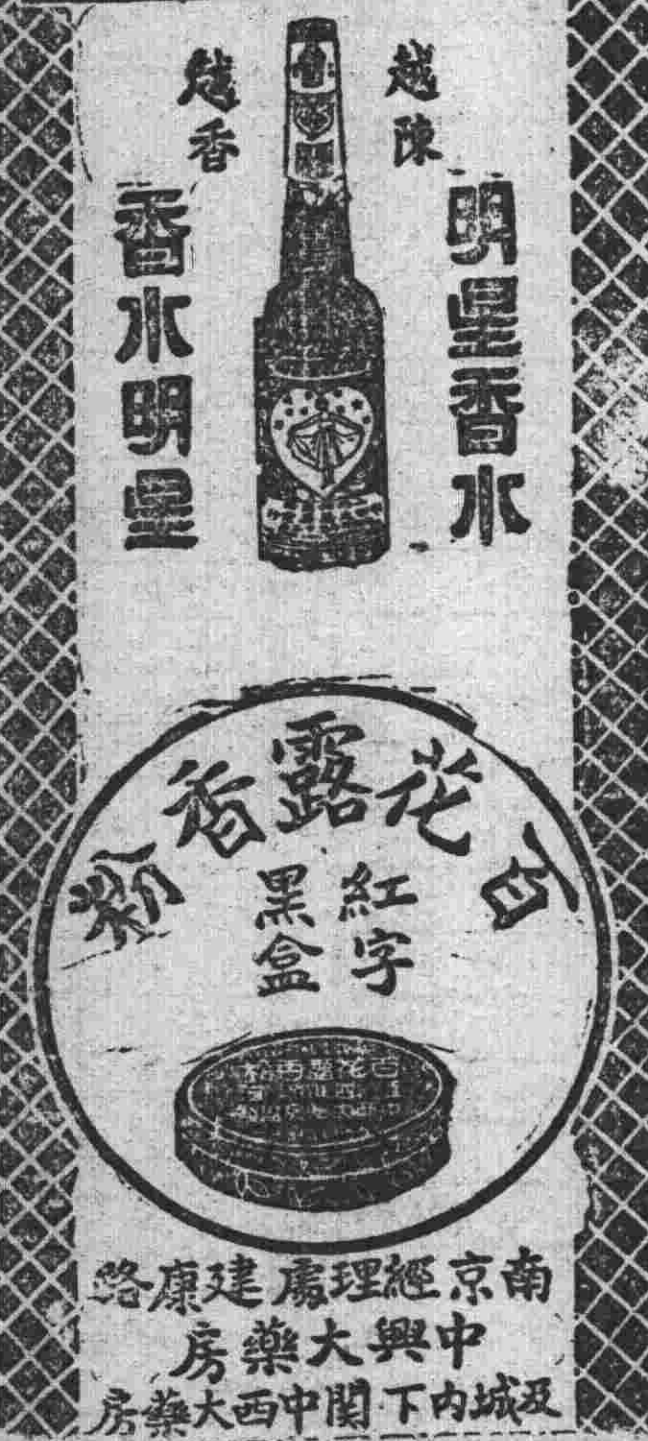 越陳
越香
明星香水
香水明星
百花露香粉
紅字
黑盒
南京經理處建康路
中興大藥房
及城內下關中西大藥房